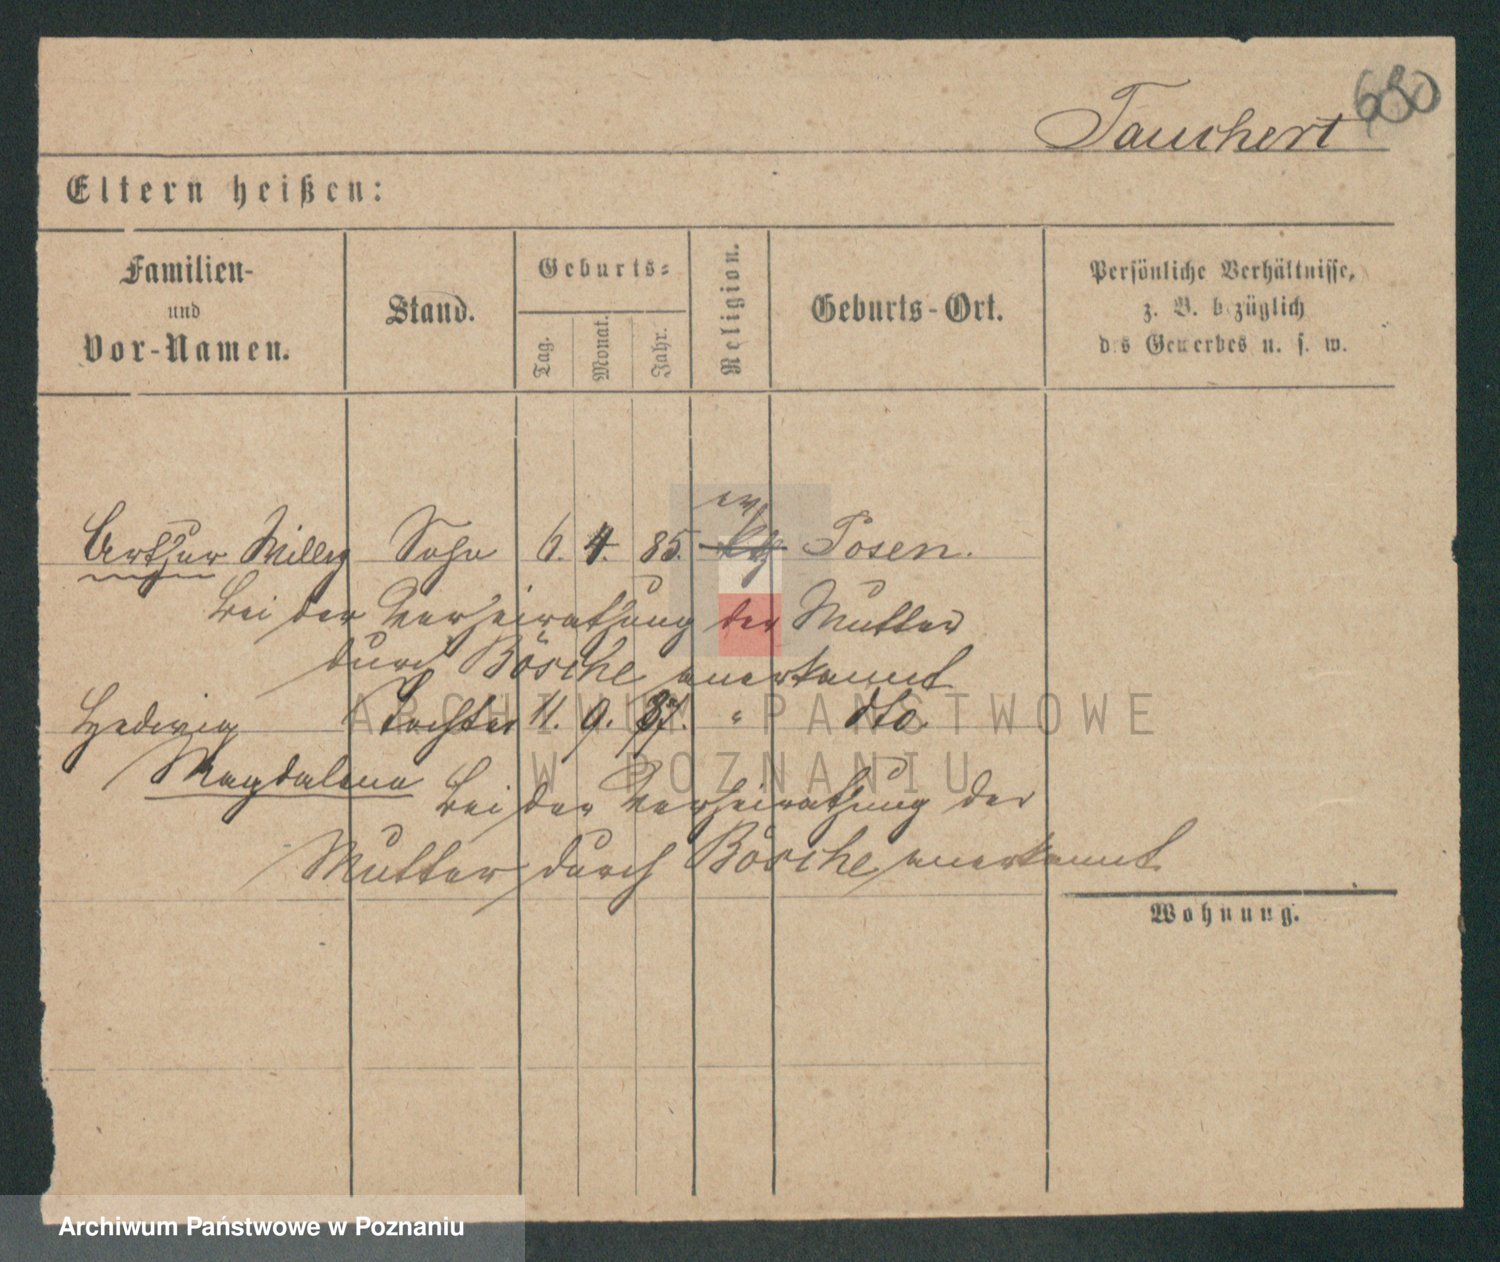 630
Tauchert
Eltern heißen:
Familien-
und
Vor-Namen.
Stand.
Geburts-
Tag.
Monat.
Jahr.
Religion.
Geburts-Ort.
Persönliche Verhältnisse,
z. B. bezüglich
des Gewerbes u. s. w.
ev
Arthur Willy Sohn 6. 4. 85. Posen.
Bei der Verheirathung der Mutter
durch Bösche anerkannt
Hedwig Tochter 11. 9. 87. " dto
Magdalena Bei der Verheirathung der
Mutter durch Bösche anerkannt
Wohnung.
ARCHIWUM PAŃSTWOWE
W POZNANIU
Archiwum Państwowe w Poznaniu